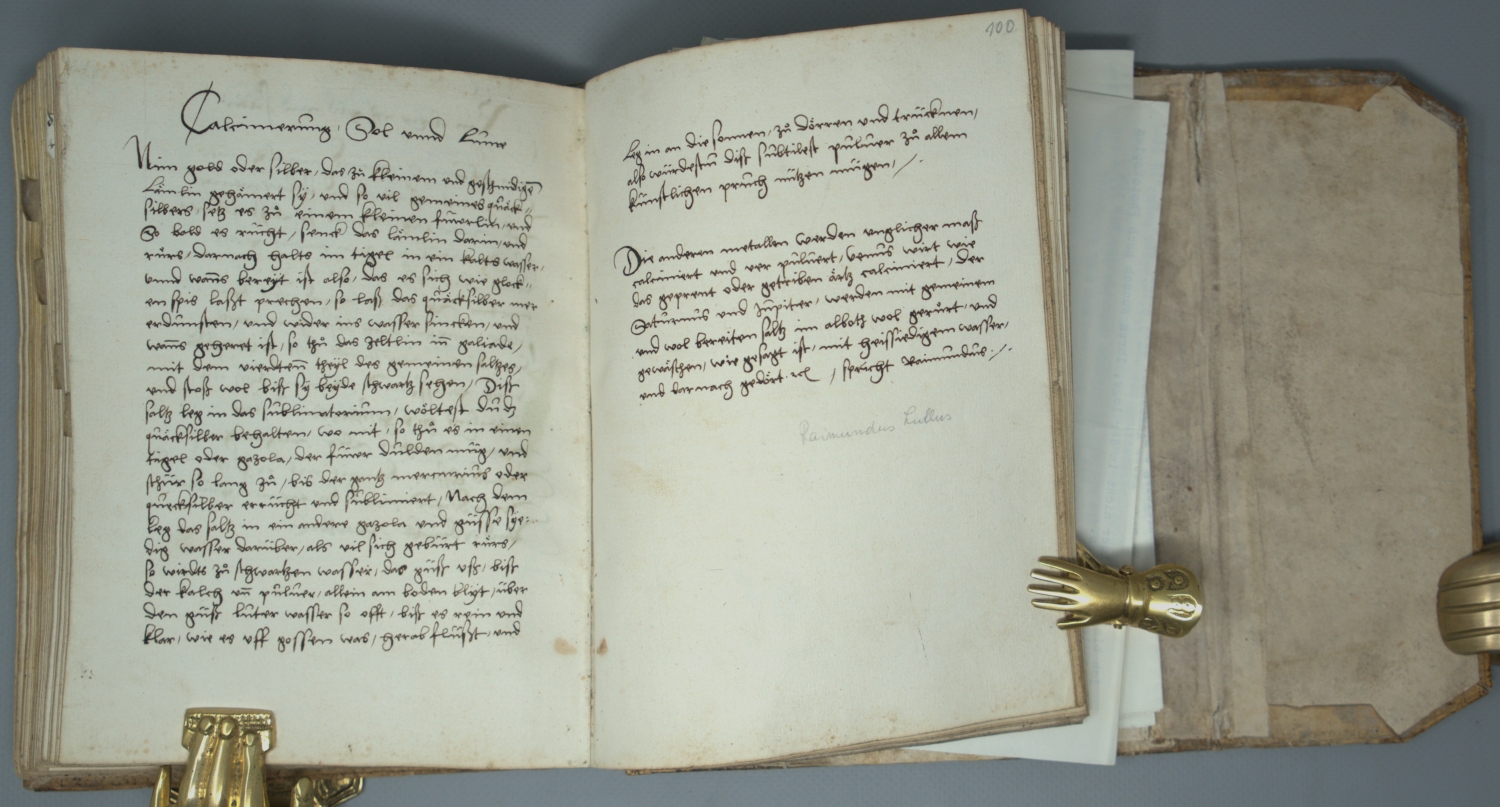 Calcinierung, Sol vnnd Lune
Nim gold oder silber, das zů kleinem und geschmidigē
Lämlin gehämert sy, und so vil gemeines quäck-
silbers, setz es zů einem kleinen füwrlin, und
So bald es rücht, senck das lämlin darin, und
rürs, darnach halts im tigel in ein kalts wasser,
vnnd wañs bereyt ist also, das es sich wie glock-
en spis laßt prechen, so laß das quäcksilber
erdünsten, und wider ins wasser sincken, und
wañs geheret ist, so thů das zeltlin iñ galiade,
mit dem vierdteñ theyl des gemeinen saltzes,
und stoß wol biß sy beyde schwartz sehen, Diß
saltz leg in das sublimatorium, wöltest du dz
quäcksilber behalten, wo nit, so thů es in einen
tigel oder gazola, der füwr dulden müg, und
schür so lang zů, bis der gantz mercurius oder
quecksilber errücht und sublimiert, Nach dem
Leg das saltz in ein andere gazola und güsse sye-
dig wasser darüber, als vil sich gebürt rürs,
so wirdts zů schwartzen wasser, das güß vß, biß
der kalch vñ puluer, allein am boden blijt, über
den güß luter wasser so offt, biß es rein und
klar, wie es vff gossen was, herab flüßt, und
100
Leg in an die sonnen, zů dörren und trücknen,
also würdestu diß subtilest puluer zů allem
künstlichen pruch nützen mügen, /.
Die anderen metallen werden unglicher maß
calciniert und ver puluert, venus wirt wie
das geprent oder getriben ärtz calciniert, der
Saturnus und Jupiter, werden mit gemeinem
und wol bereiten saltz im alboth wol gerürt, und
gewäschen, wie gesagt ist, mit heissiedigem wasser,
und darnach gedört. ꝛc / spricht Raimundus. /.
Raimundus Lullus